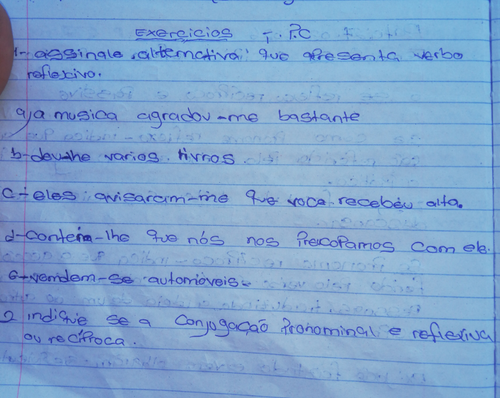 Exercicios T.P.C
1- assinale alternativa que apresenta verbo
reflexivo.
a) a musica agradou-me bastante
b- deu-lhe varios livros
c- eles avisaram-me que voce recebeu alta.
d- conteim-lhe que nós nos Preocupamos com ele.
e- vendem-se automóveis.
2 indique se a conjugação Pronominal e reflexiva
ou recíproca.